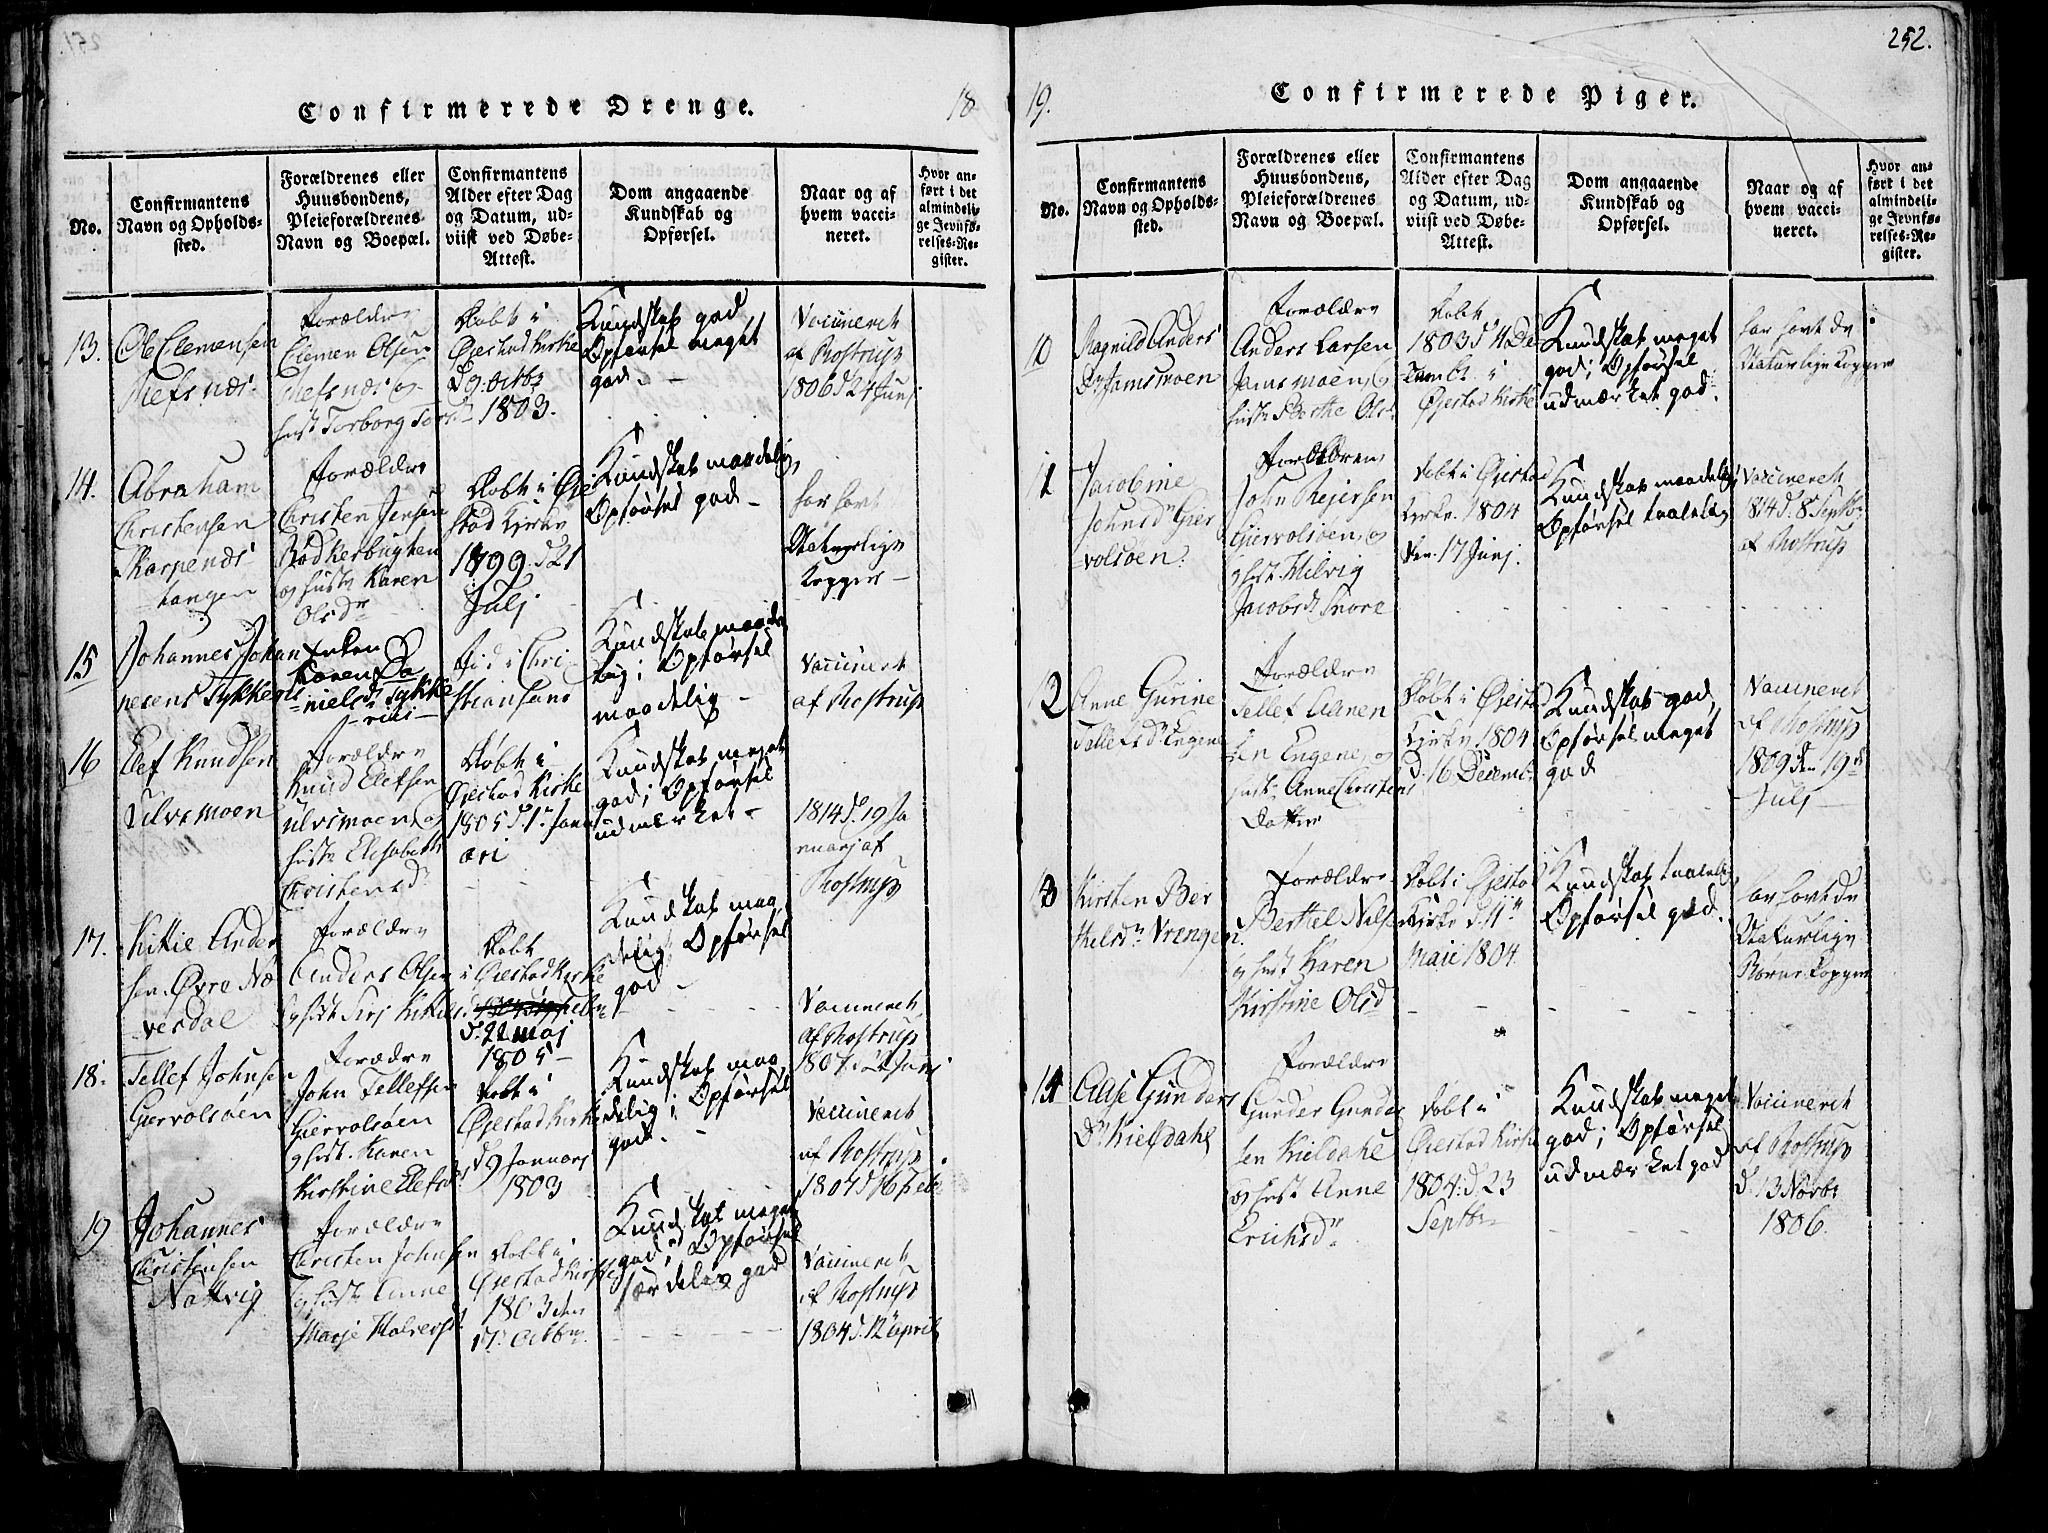 252.
Confirmerede Drenge.
18
No.
Confirmantens
Navn og Opholds-
sted.
Forældrenes eller
Huusbondens,
Pleieforældrenes
Navn og Boepæl.
Confirmantens
Alder efter Dag
og Datum, ud-
viist ved Døbe-
Attest.
Dom angaaende
Kundskab og
Opførsel.
Naar og af
hvem vacci-
neret.
Hvor an-
ført i det
almindeli-
ge Jevnfø-
relses-Re-
gister.
13.
Ole Clemensen
Næfsnæs
Forældre
Clemen Olsen
Næfsnæs og
Torborg
Døbt i
Øiestad Kirke
d 9. octbr
1803.
Kundskab god
Opførsel meget
god. -
Vaccineret
af Rostrup
1806 d 24 Junj
14.
Abraham
Christensen
Skarpenæs
tangen
Forældre
Christen Jensen
Rødkerbugten
og hustr Karen
Olsdr
Døbt i Øie
stad Kirke
1799. d 21
Julj
Kundskab maadelig
Opførsel god -
har havt
Naturlige
Kopper -
15
Johannes Johan
nesens Tykkerus
Enken
Karen Da
nielsdr Tykke
rus
Fød i Chri
stiansand
Kundskab maade
lig; Opførsel
maadelig -
Vaccineret
af Rostrup
16
Elef Knudsen
Ulvemoen
Forældre
Knud Elefsen
Ulvemoen og
hustr Elisabeth
Christensdr
Døbt i
Øiestad Kirke
1805 d. 1 Janu
ari
Kundskab meget
god; Opførsel
udmærket -
1814 d. 19 Ja
nuarj af
Rostrup
17.
Kittil Ander
sen Øvre Næ
vesdal
Forældre
Anders Olsen
og hust Sirj Kittels
Døbt
i Øiestad Kirke
d. 22 Maj
1805 -
Kundskab maa
delig, Opførsel
god -
Vaccineret
af Rostrup
1807. 24 Junj
18.
Tellef Johnsen
Giervolsøen
Forældre
John Tellefsen
Giervolsøen
og hust. Karen
Kirstine Elefsdr
Døbt i
Øiestad Kirke
d 9 Januarj
1803
Kundskab maa
delig; Opførsel
god. -
Vaccineret
af Rostrup
1807 d 16 Feb
19
Johannes
Christensen
Natvig
Forældre
Christen Johnsen
og hustr Anne
Marje Halvorsdr
Døbt i
Øiestad Kirke
1803 den
17. Octbr
Kundskab meget
god, Opførsel
særdeles god
Vaccineret
af Rostrup
1804 d. 12 April
19.
Confirmerede Piger.
No.
Confirmantens
Navn og Opholds-
sted.
Forældrenes eller
Huusbondens,
Pleieforældrenes
Navn og Boepæl.
Confirmantens
Alder efter Dag
og Datum, ud-
viist ved Døbe-
Attest.
Dom angaaende
Kundskab og
Opførsel.
Naar og af
hvem vacci-
neret.
Hvor an-
ført i det
almindeli-
ge Jevnfø-
relses-Re-
gister.
10
Ragnild Anders
Dr Jamsmoen
Forældre
Anders Larsen
Jamsmoen, og
hustr Berthe Olsdr
Døbt
1803 d 4 De
cembr i
Øiestad Kirke
Kundskab meget
god; Opførsel
udmærket god.
har havt de
Naturlige Kopper
11
Jacobine
Johnsdr Gier
volsøen.
Forældrene
John Rejersen
Giervolsøen, og
hust. Hilvig
Jacobsdr Snore
Døbt i Øiestad
Kirke. 1804
den 17 Junj.
Kundskab maadelig
Opførsel taalelig
Vaccineret
1814 d. 8 Septbr
af Rostrup
12
Anne Gurine
Tellefsdr Engene
Forældre
Tellef Aanen
sen Engene, og
hustr Anne Christens
Datter
Døbt i Øiestad
Kirke, 1804
d. 16 Decemb.
Kundskab god,
Opførsel meget
god
Vaccineret
af Rostrup
1809 den 19d
Julj
13
Kirsten Ber
thelsdr Vrengen.
Forældre
Berthel Nilsen
og hust Karen
Kirstine Olsd
Døbt i Øiestad
Kirke d. 11te
Maii 1804.
Kundskab taalelig
Opførsel god.
har havt de
Naturlige
Børnekopper
14
Aase Gunders
Dr Kieldahl
Forældre
Gunder Gunder
sen Kieldahl
og hust Anne
Erichsdr
Døbt i
Øiestad Kirke
1804. d. 23
Septbr
Kundskab meget
god; Opførsel
udmærket god
Vaccineret
af Rostrup
d. 13 Novbr
1806.